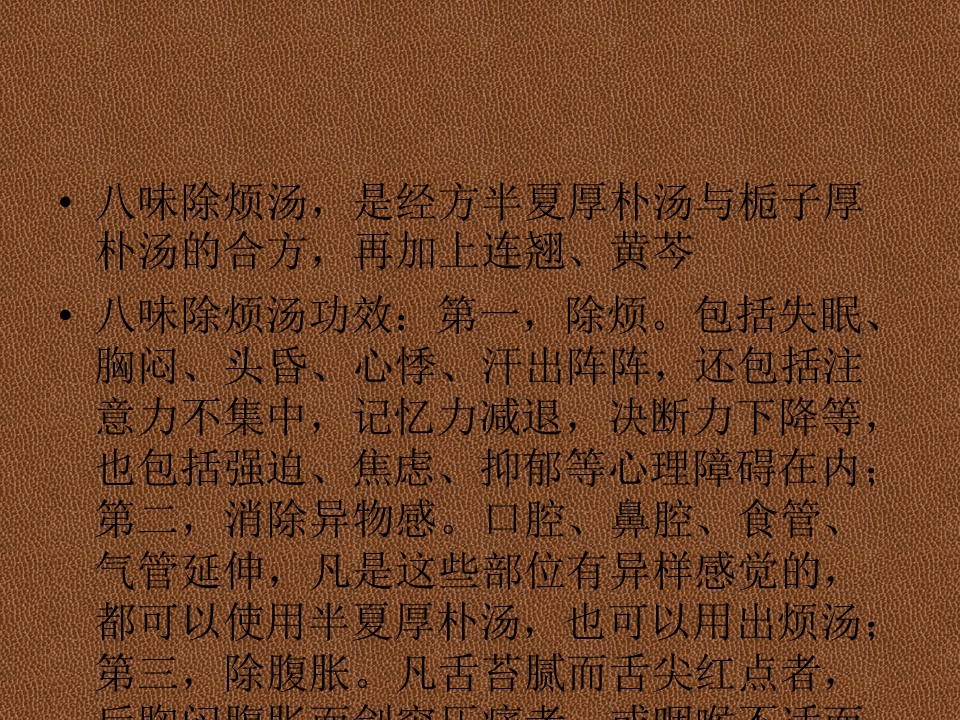 • 八味除烦汤，是经方半夏厚朴汤与栀子厚
朴汤的合方，再加上连翘、黄芩
• 八味除烦汤功效：第一，除烦。包括失眠、
胸闷、头昏、心悸、汗出阵阵，还包括注
意力不集中，记忆力减退，决断力下降等，
也包括强迫、焦虑、抑郁等心理障碍在内；
第二，消除异物感。口腔、鼻腔、食管、
气管延伸，凡是这些部位有异样感觉的，
都可以使用半夏厚朴汤，也可以用出烦汤；
第三，除腹胀。凡舌苔腻而舌尖红点者，